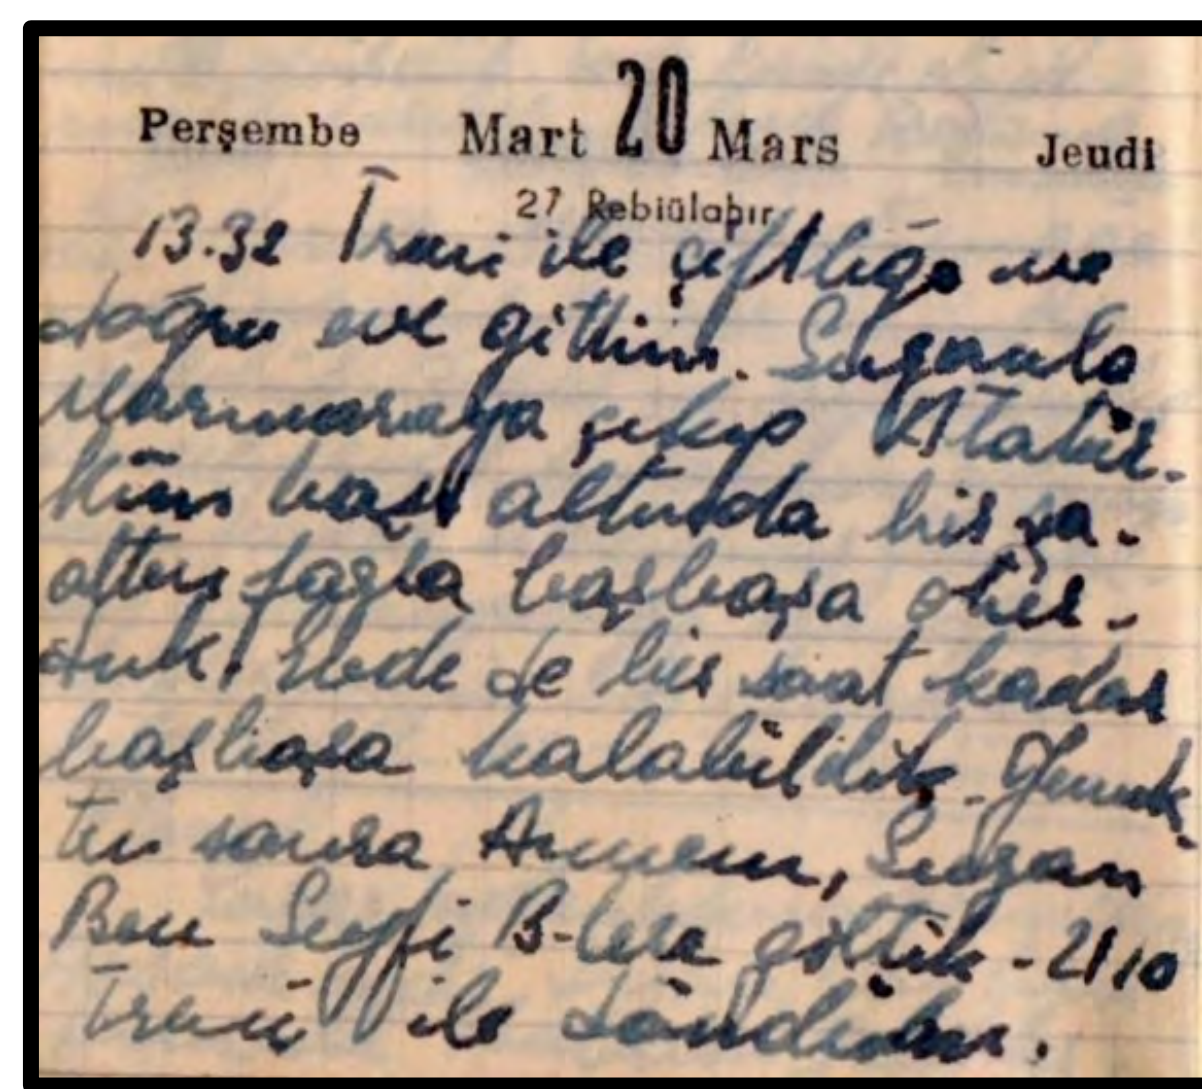 Perşembe Mart 20 Mars Jeudi
27 Rebiülahır
13.32 Treni ile çiftliğe ve
doğru eve gittim. Suzanla
Marmaraya çıkıp Atatür-
kün başı altında bir sa-
atten fazla başbaşa otur-
duk. Evde de bir saat kadar
başbaşa kalabildik. Yemek-
ten sonra Annem, Suzan
Ben Seyfi B-lere gittik - 2110
Treni ile döndüm.